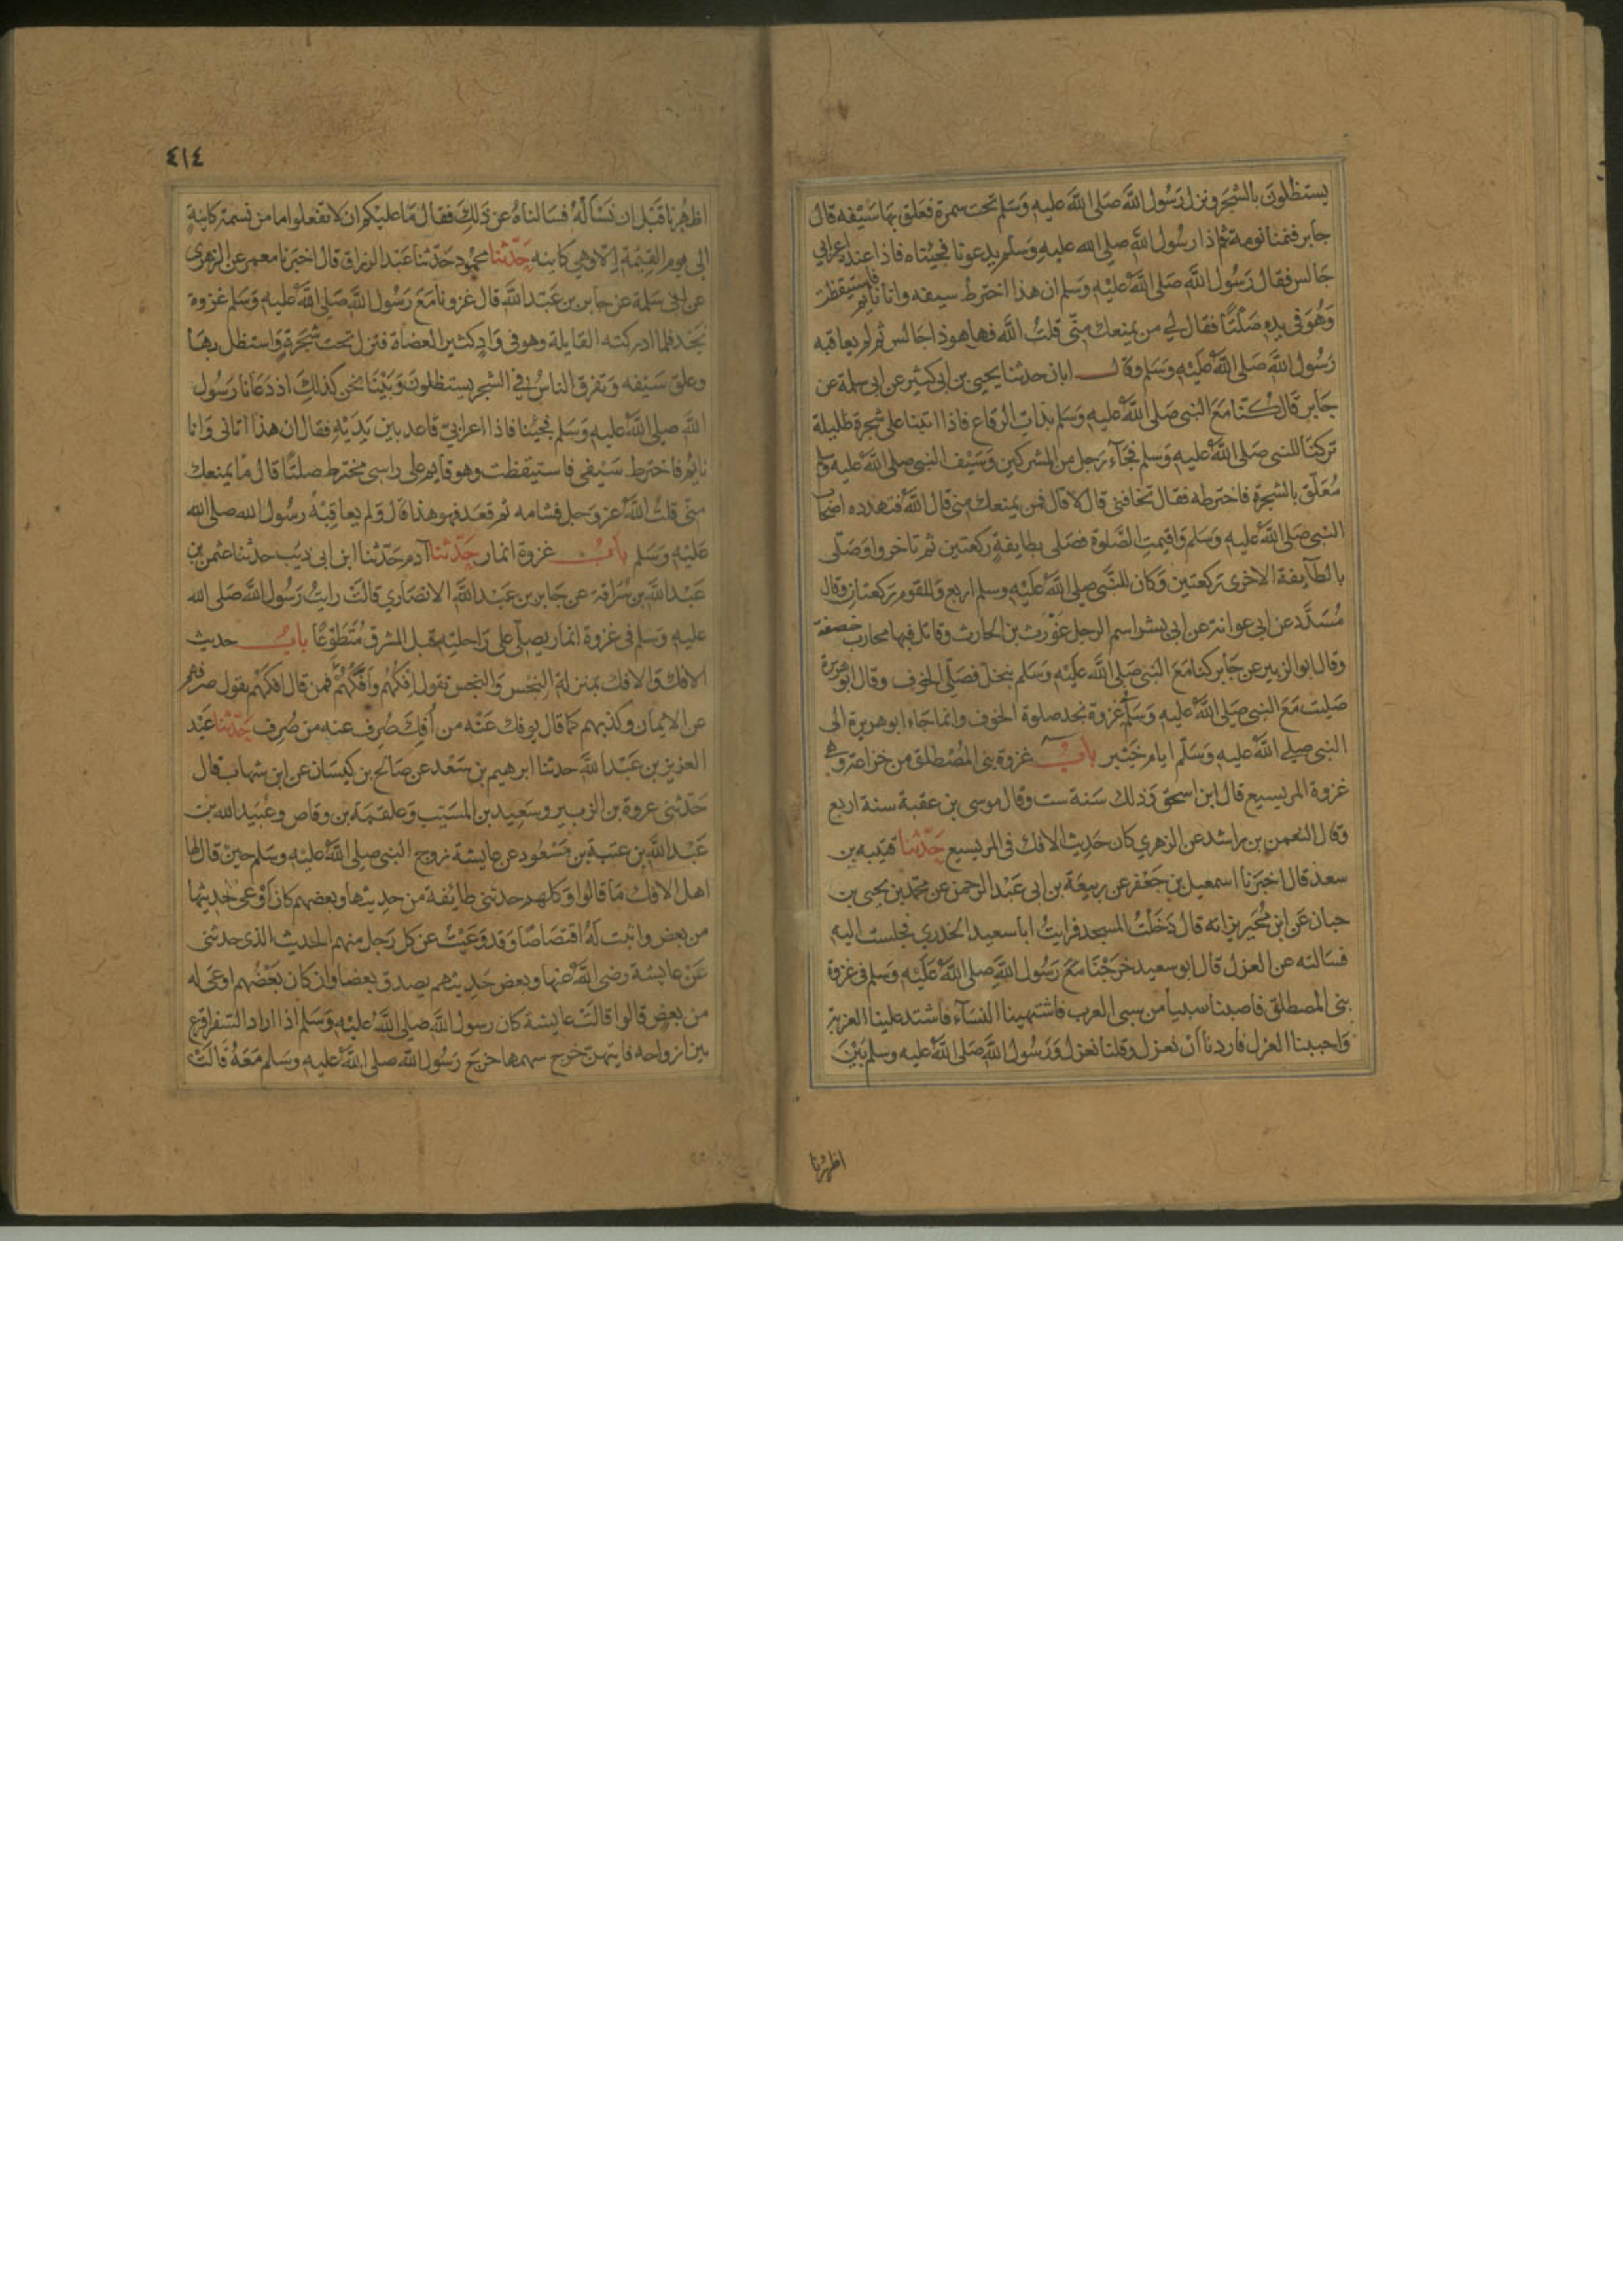 يستظلون بالشجر ونزل رَسُول الله صَلى الله عليه وَسَلم تحت سمرة فعَلق بها سَيْفه قال
جابر فنمنا نومة ثم اذا رسُول الله صلى الله عليه وَسَلم يدعونا فجئناه فاذا عنده اعرابي
جَالس فقال رَسُول الله صَلى الله عليْه وَسَلم ان هذا اخترط سيفه وانا نايم فاستيقظت
وَهُوَ في يده صَلْتًا فقال لي من يمنعك منّي قلتُ الله فها هوذا جَالس ثم لم يعاقبه
رَسُول الله صَلى الله عَليْه وَسَلم وَقال ابان حدثنا يحيى بن ابي كثير عن ابي سلمة عن
جَابر قَال كُنّا مَعَ النبي صَلى الله عليه وَسَلم بذات الرقاع فاذا اتينا على شجرة ظليلة
تركنَا للنبي صَلى الله عليه وَسَلم فجَآء رَجل من المشركين وَسَيْف النبي صلى الله عليه وسلم
مُعَلّق بالشجرة فاخترطه فقال تخافني قال لا قال فمن يمنعك مني قال الله فتهدده اصحاب
النبي صَلى الله عليه وَسَلم وَاقيمت الصَّلوة فصَلى بطايفةٍ ركعتين ثم تاخروا وَصَلى
بالطآيفة الاخرى ركعتين وَكان للنَّبي صلى الله عَليْه وسلم اربع وَللقوم ركعتان وقال
مُسَدَّد عن ابي عوانة عن ابي بشر اسم الرجل غَوْرث بن الحارث وقاتل فيها محارب خصفة
وقال ابو الزبير عن جَابر كنا مَعَ النبي صَلى الله عَليْه وَسَلم بنخل فصَلّى الخوف وقال ابو هريرة
صَليت مَعَ النبي صَلى الله عليه وَسَلم غزوة نجد صلوة الخوف وانما جَاء ابو هريرة الى
النبي صلى الله عليه وَسَلّم ايام خَيْبر بابُ غزوة بني المُصْطلق من خزاعة وهي
غزوة المريسيع قال ابن اسحق وَذلك سَنة ست وقال موسى بن عقبة سنة اربع
وَقال النعمن بن راشد عن الزهري كان حَدِيث الافك في المريسيع حَدّثنا قتيبه بن
سعد قال اخبَرنا اسمعيل بن جَعْفر عن ربيعَة بن ابي عَبْد الرحمن عن محمّد بن يحيى بن
حبان عَن ابن مُحَيريز انه قال دَخَلْتُ المسجد فرايتُ ابا سعيد الخدري فجلست اليه
فسَالته عن العزل قال ابو سعيد خرَجْنَا مَعَ رَسُول الله صلى الله عَليْه وَسَلم في غزوة
بني المصطلق فاصبنا سبيا من سبي العرب فاشتهينا النسَآء فاشتد علينا العزبة
وَاحببنا العزل فاردنا اَن نعزل وقلنا نعزل وَرَسُول الله صَلى الله عليه وسلم بَيْنَ
اظهُرنا
٤١٤
اظهُرنا قَبْل ان نَسْأَلَهُ فسَالناهُ عن ذلِك فقال مَا عليْكم ان لا تفعلوا ما من نسمة كاينةٍ
الى يوم القِيٰمة اِلا وهي كاينه حَدّثنا محمُود حَدّثنا عَبْد الرزاق قال اخبَرنا معمر عن الزهري
عن ابي سَلمة عن جابر بن عَبْد الله قال غزونا مَعَ رَسُول الله صَلى الله عليه وَسَلم غزوة
نجْد فلما ادركته القايلة وهو في وَادٍ كثير العضاة فنزل تحت شجَرةٍ وَاستظل بهَا
وعلق سَيْفه وَتفرق الناسُ في الشجر يستظلونَ وَبَيْنَا نحن كذلِكَ اذ دَعَانا رَسُول
الله صلى الله عليه وَسَلم فجئنا فاذا اعرابيّ قاعد بين يَدَيْهِ فقال ان هذا اتاني وَانا
نايم فاخترط سَيْفي فاستيقظت وهو قايم على راسي مخترط صلتًا قال مَا يمنعك
منّي قلتُ الله عز وَجل فشامه ثم قعَد فهو هذا قال وَلم يعاقبْهُ رسُول الله صلى الله
عَليْه وَسَلم بابُ غزوة انمار حَدّثنا آدم حَدّثنا ابن ابي ذيب حدثنا عثمن بن
عَبْد الله بن سُراقة عن جَابر بن عَبْد الله الانصَاري قالَ رايتُ رَسُول الله صَلى الله
عليه وَسَلم في غزوة انمار يصلي على رَاحلته قبل المشرق مُتَطوّعًا بابُ حديث
الافك وَالافك بمنزلة النِّجْس وَالنجس تقول اِفكهُم وَاَفكهُمْ فمن قال افكهُمْ يقول صرفهم
عن الايمان وكذبهم كما قال يوفك عَنْه من اُفِك صُرِف عنه من صُرِف حَدّثنا عَبْد
العزيز بن عَبْد الله حدثنا ابرهيم بن سَعْد عن صَالح بن كيسَان عن ابن شهاب قال
حَدّثني عروة بن الزبير وسَعِيد بن المسَيّب وَعلقمَة بن وقاص وعبَيد الله بن
عَبْد الله بن عتبَة بن مَسْعُود عن عايشة زوج النبي صلى الله عليْه وسَلم حين قال لها
اهل الافك مَا قالوا وَكلهم حدثني طايُفة من حديثها وبعضهم كان اَوْعى لحديثها
من بعض واثبت لَهُ اقتصَاصًا وَقد وَعَيْتُ عن كل رَجل منهم الحديث الذي حدثني
عَنْ عايشة رضي الله عنها وبعض حَدِيثهم يصدق بعضا وان كان بَعْضُهم اوعى له
من بعضٍ قالوا قالَتْ عايشة كان رسول الله صلى الله عليْه وَسَلم اذا اراد السَّفر اقرع
بين ازواجه فايتهنّ خرج سهمها خرَج رَسُول الله صلى الله عليه وسَلم مَعَهُ قالَتْ